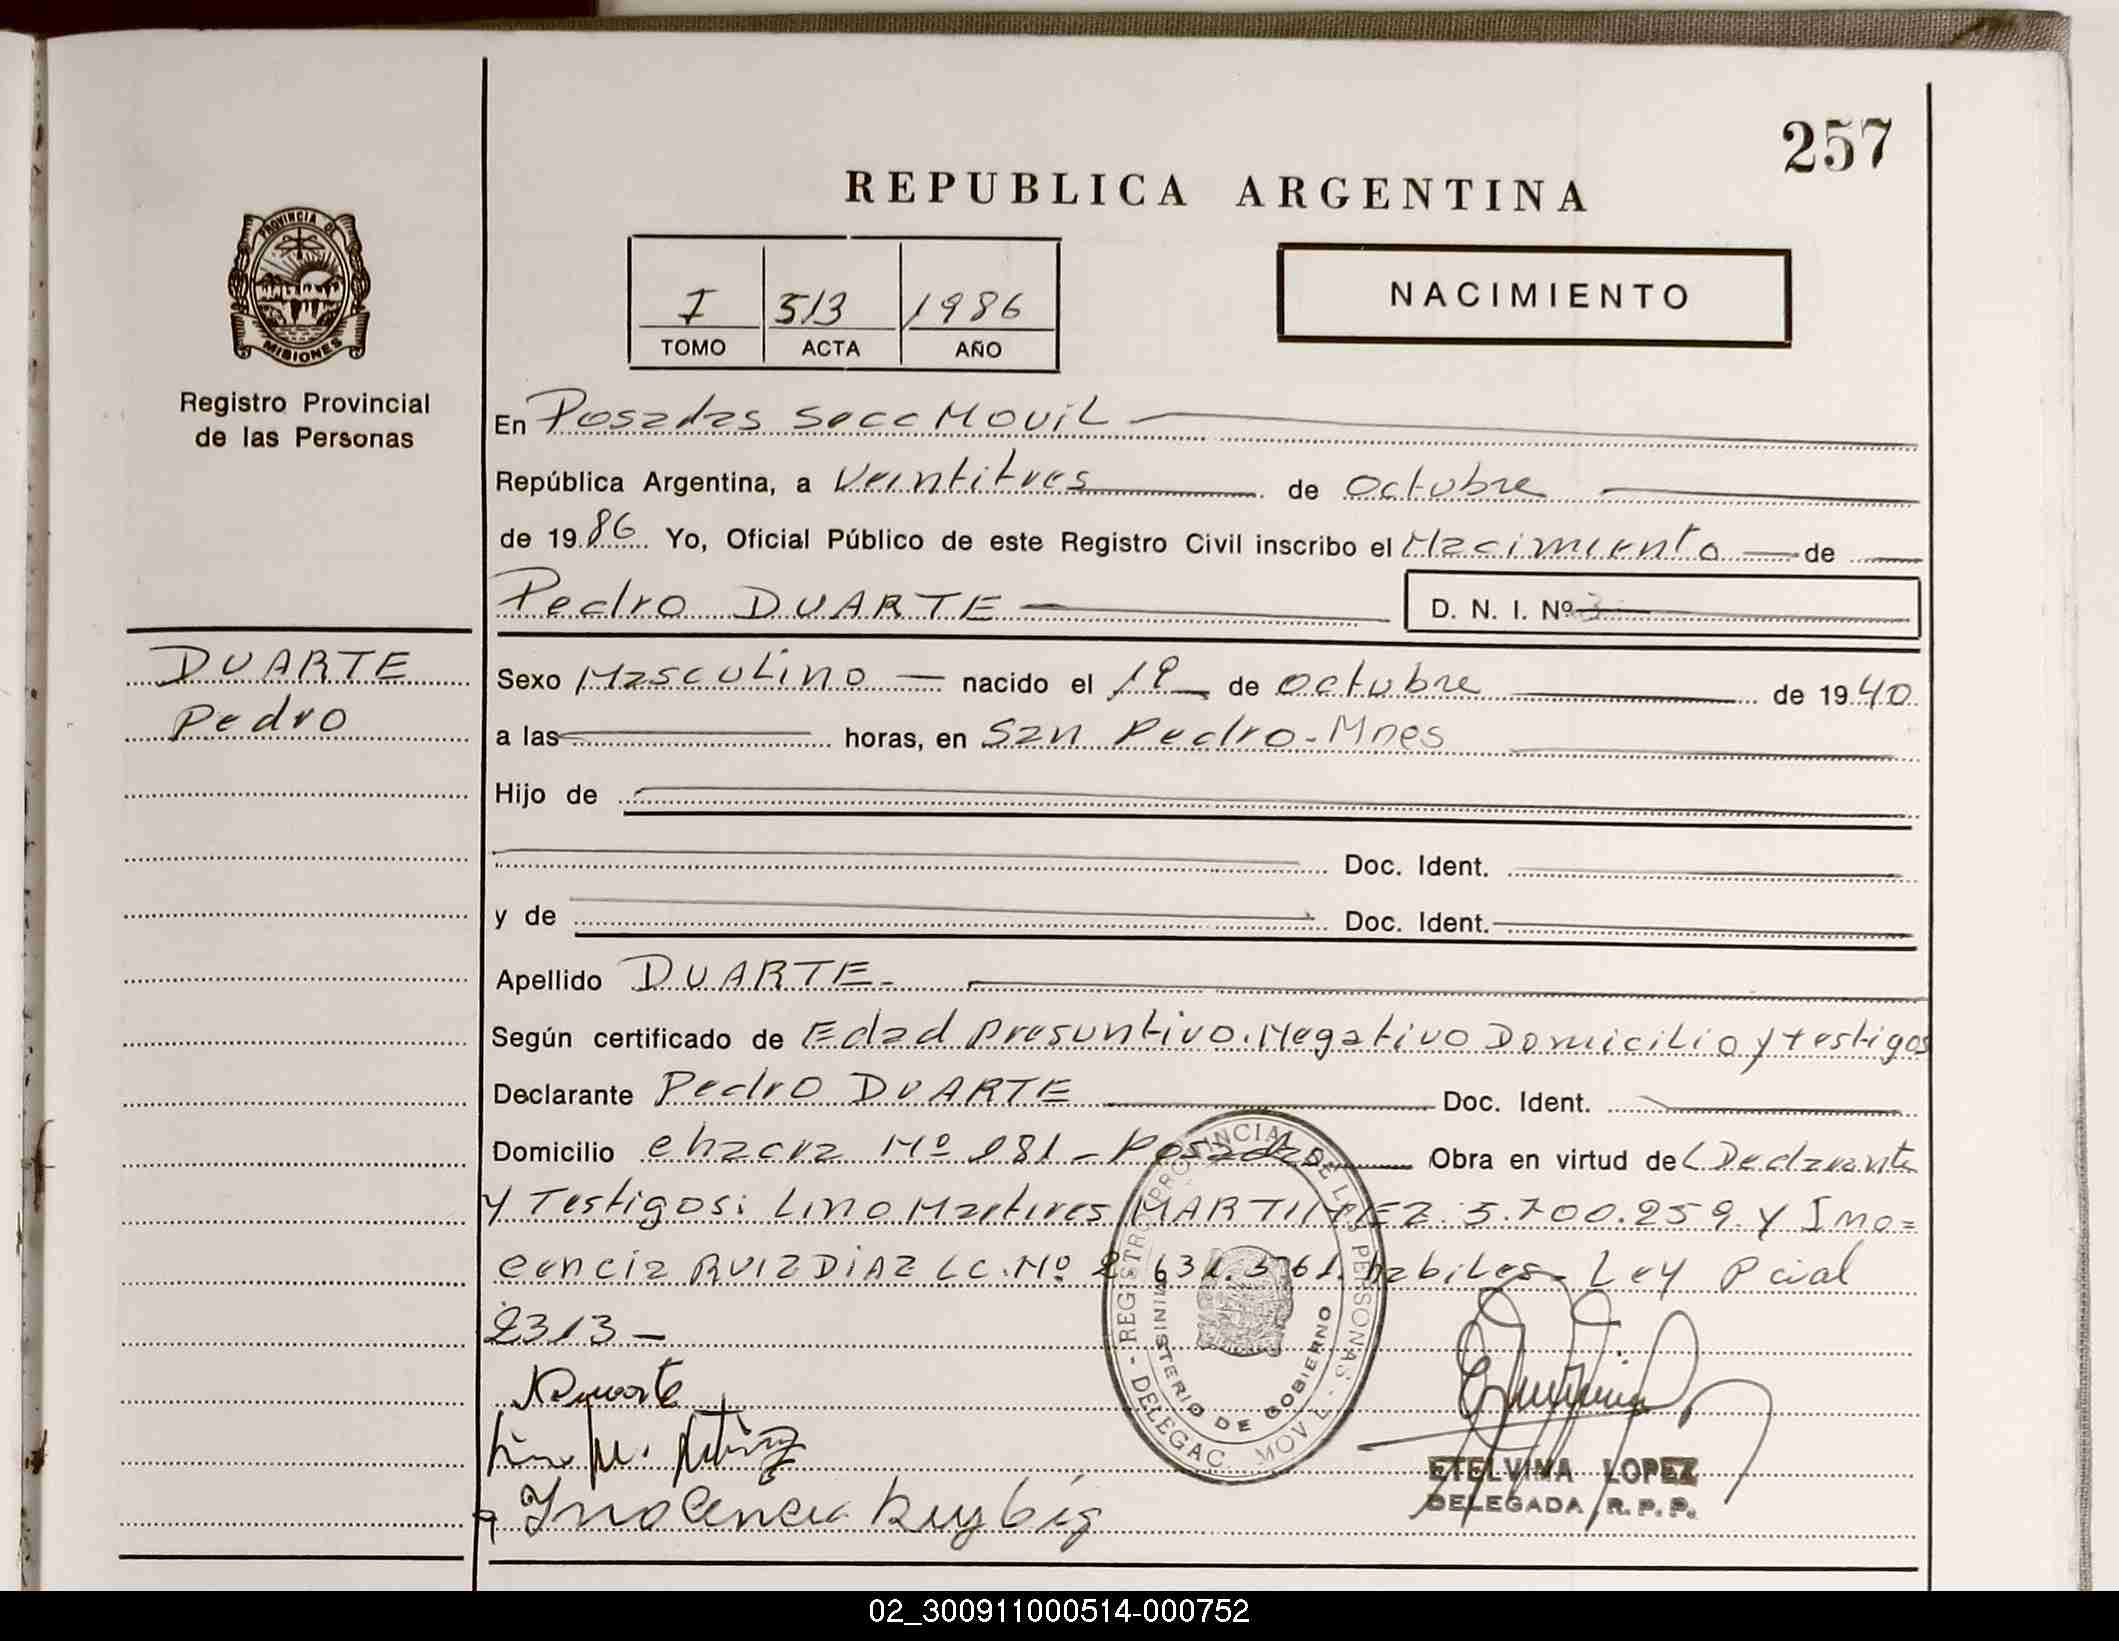 257
REPUBLICA ARGENTINA
PROVINCIA DE
MISIONES
Registro Provincial
de las Personas
I 513 1986
TOMO ACTA AÑO
NACIMIENTO
En Posadas Secc Movil
República Argentina, a Veintitres de Octubre
de 1986 Yo, Oficial Público de este Registro Civil inscribo el Nacimiento de
Pedro DUARTE D. N. I. Nº
DUARTE
Pedro
Sexo Masculino nacido el 19 de octubre de 1940
a las horas, en San Pedro - Mnes
Hijo de
Doc. Ident.
y de Doc. Ident.
Apellido DUARTE
Según certificado de Edad presuntivo. Negativo Domicilio y testigos
Declarante Pedro DUARTE Doc. Ident.
Domicilio chacra Nº 181 - Posadas Obra en virtud de Declarante
y Testigos: Lino Martires MARTINEZ 5.700.259 y Ino=
cencia RUIZ DIAZ LC. Nº 2.631.361. habiles - Ley Pcial
2313 -
Duarte
Lino M.
Inocencia
REGISTRO PROVINCIAL DE LAS PERSONAS
MINISTERIO DE GOBIERNO
DELEGAC. MOVIL
ETELVINA LOPEZ
DELEGADA R. P. P.
02_300911000514-000752